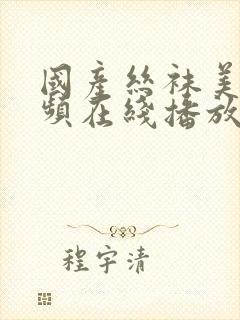 國產絲袜美
頻在綫播放
程宇清